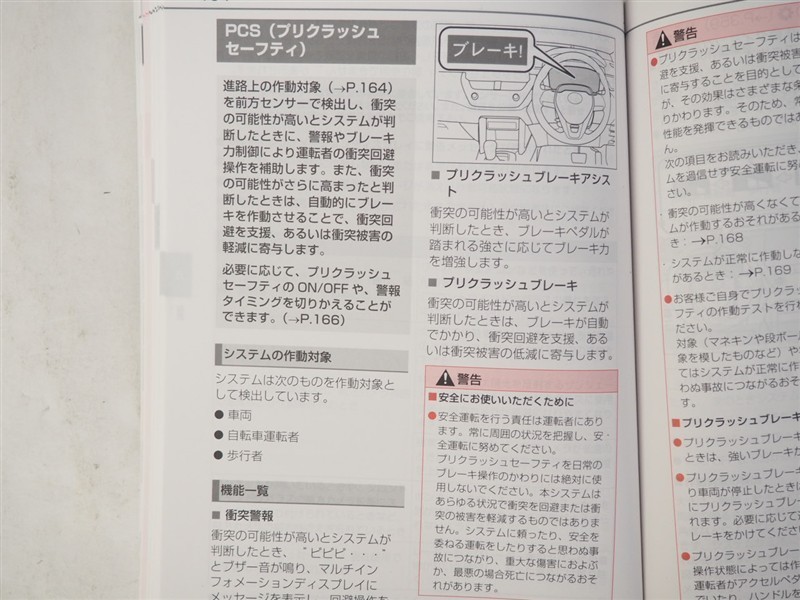 PCS（プリクラッシュ
セーフティ）
進路上の作動対象（→P.164）
を前方センサーで検出し、衝突
の可能性が高いとシステムが判
断したときに、警報やブレーキ
力制御により運転者の衝突回避
操作を補助します。また、衝突
の可能性がさらに高まったと判
断したときは、自動的にブレー
キを作動させることで、衝突回
避を支援、あるいは衝突被害の
軽減に寄与します。
必要に応じて、プリクラッシュ
セーフティの ON/OFF や、警報
タイミングを切りかえることが
できます。（→P.166）
システムの作動対象
システムは次のものを作動対象と
して検出しています。
● 車両
● 自転車運転者
● 歩行者
機能一覧
■ 衝突警報
衝突の可能性が高いとシステムが
判断したとき、“ピピピ・・・”
とブザー音が鳴り、マルチイン
フォメーションディスプレイに
メッセージを表示し、回避操作を
ブレーキ!
■ プリクラッシュブレーキアシス
ト
衝突の可能性が高いとシステムが
判断したとき、ブレーキペダルが
踏まれる強さに応じてブレーキ力
を増強します。
■ プリクラッシュブレーキ
衝突の可能性が高いとシステムが
判断したときは、ブレーキが自動
でかかり、衝突回避を支援、ある
いは衝突被害の低減に寄与します。
警告
■ 安全にお使いいただくために
● 安全運転を行う責任は運転者にあり
ます。常に周囲の状況を把握し、安
全運転に努めてください。
プリクラッシュセーフティを日常の
ブレーキ操作のかわりには絶対に使
用しないでください。本システムは
あらゆる状況で衝突を回避または衝
突の被害を軽減するものではありま
せん。システムに頼ったり、安全を
委ねる運転をしたりすると思わぬ事
故につながり、重大な傷害におよぶ
か、最悪の場合死亡につながるおそ
れがあります。
警告
● プリクラッシュセーフティは
避を支援、あるいは衝突被害
に寄与することを目的として
が、その効果はさまざまな条
りかわります。そのため、常
性能を発揮できるものではあ
ん。
次の項目をお読みいただき、
ムを過信せず安全運転に努め
さい。
・ 衝突の可能性が高くなくて
ムが作動するおそれがある
き：→P.168
・ システムが正常に作動しな
があるとき：→P.169
● お客様ご自身でプリクラッ
フティの作動テストを行わ
ださい。
対象（マネキンや段ボー
象を模したものなど）や
てはシステムが正常に作
わぬ事故につながるおそ
す。
■ プリクラッシュブレーキ
● プリクラッシュブレーキ
ときは、強いブレーキか
● プリクラッシュブレーキ
り車両が停止したときは
にプリクラッシュブレー
れます。必要に応じて
レーキをかけてくださ
● プリクラッシュブレー
操作状態によっては作
運転者がアクセルペダ
でいたり、ハンドルを